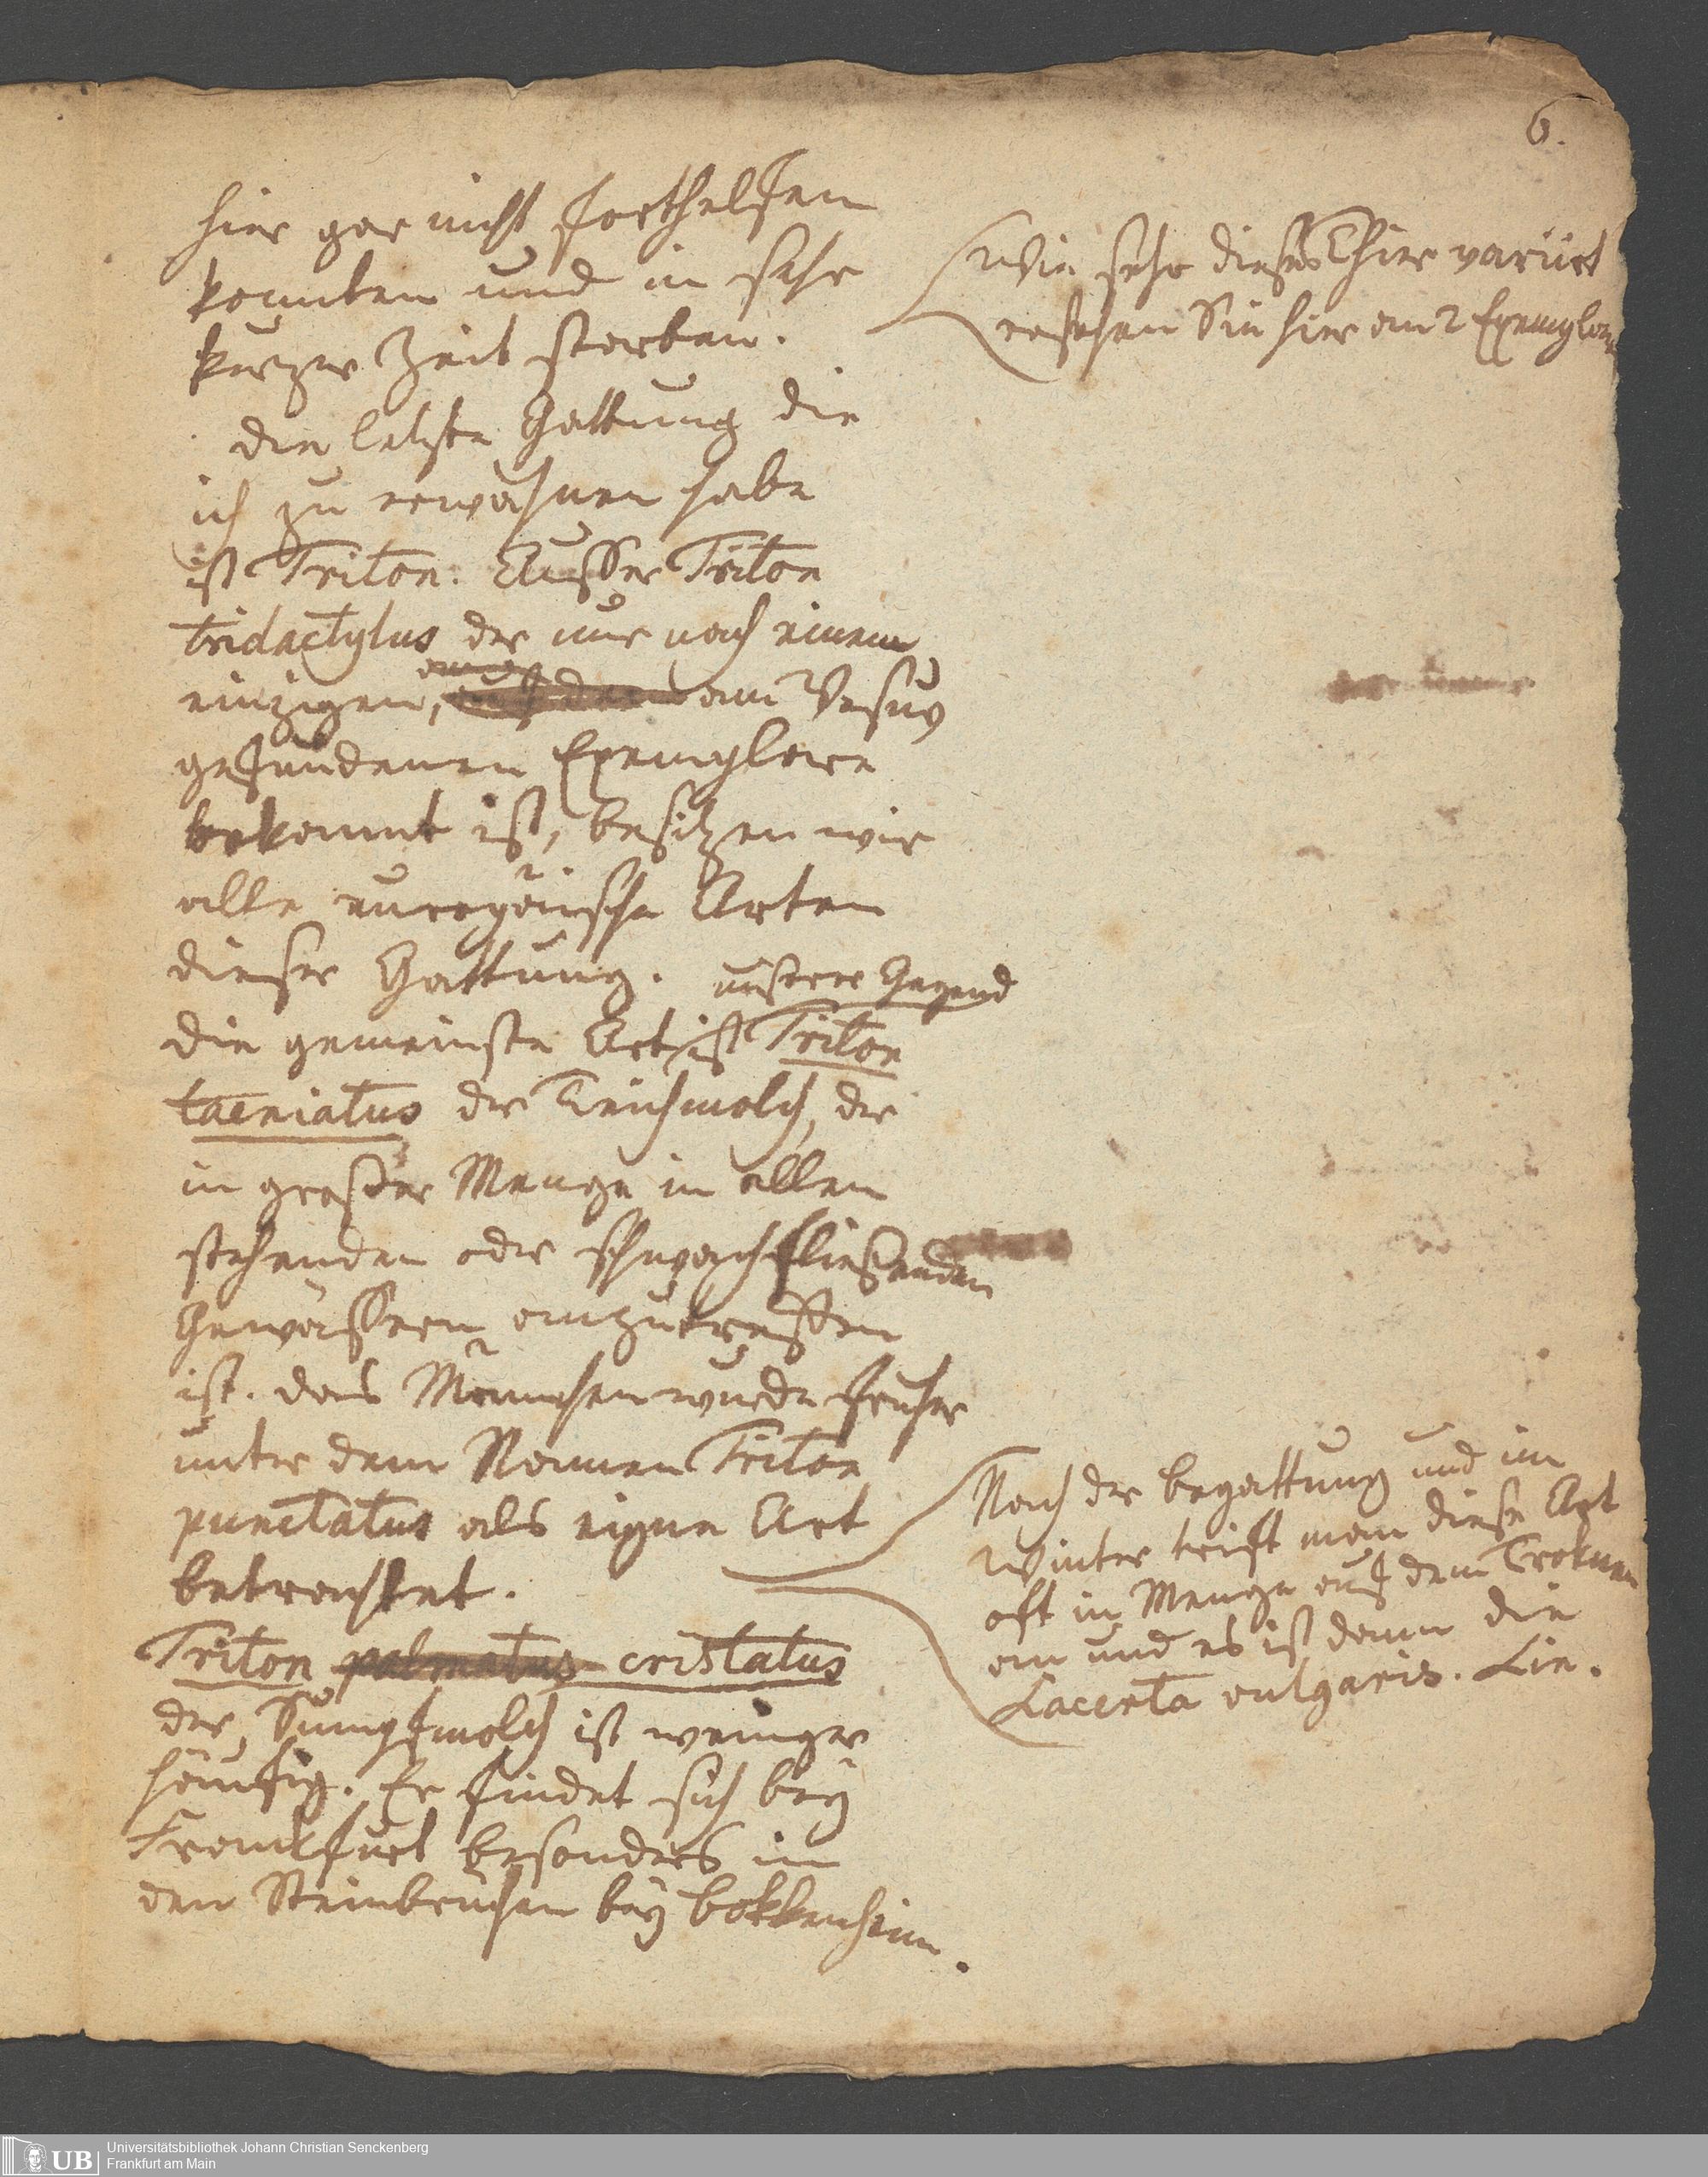 6.
hier gar nicht forthelfen
konnten und in sehr
kurzer Zeit starben.
Wie sehr dieses Thier variirt
ersehen Sie hier an 2 Exemplaren
die letzte Gattung die
ich zu erwähnen habe
ist Triton. Ausser Triton
tridactylus der nur nach einem
einzigen, am Vesuv
gefundenen Exemplare
bekannt ist, besitzen wir
alle europäische Arten
dieser Gattung.
unserer Gegend
die gemeinste Art ist Triton
taeniatus der Teichmolch, der
in großer Menge in allen
stehenden oder schwachfließenden
Gewässern anzutreffen
ist. das Männchen wurde früher
unter dem Namen Triton
punctatus als eigne Art
betrachtet.
Nach der begattung und im
Winter trift man diese Art
oft in Menge auf dem Troknen
an und es ist dann die
Lacerta vulgaris. Lin.
Triton palmatus cristatus
der Sumpfmolch ist weniger
häufig. Er findet sich bey
Frankfurt besonders in
den Steinbrüchen bey bokkenheim.
UB
Universitätsbibliothek Johann Christian Senckenberg
Frankfurt am Main